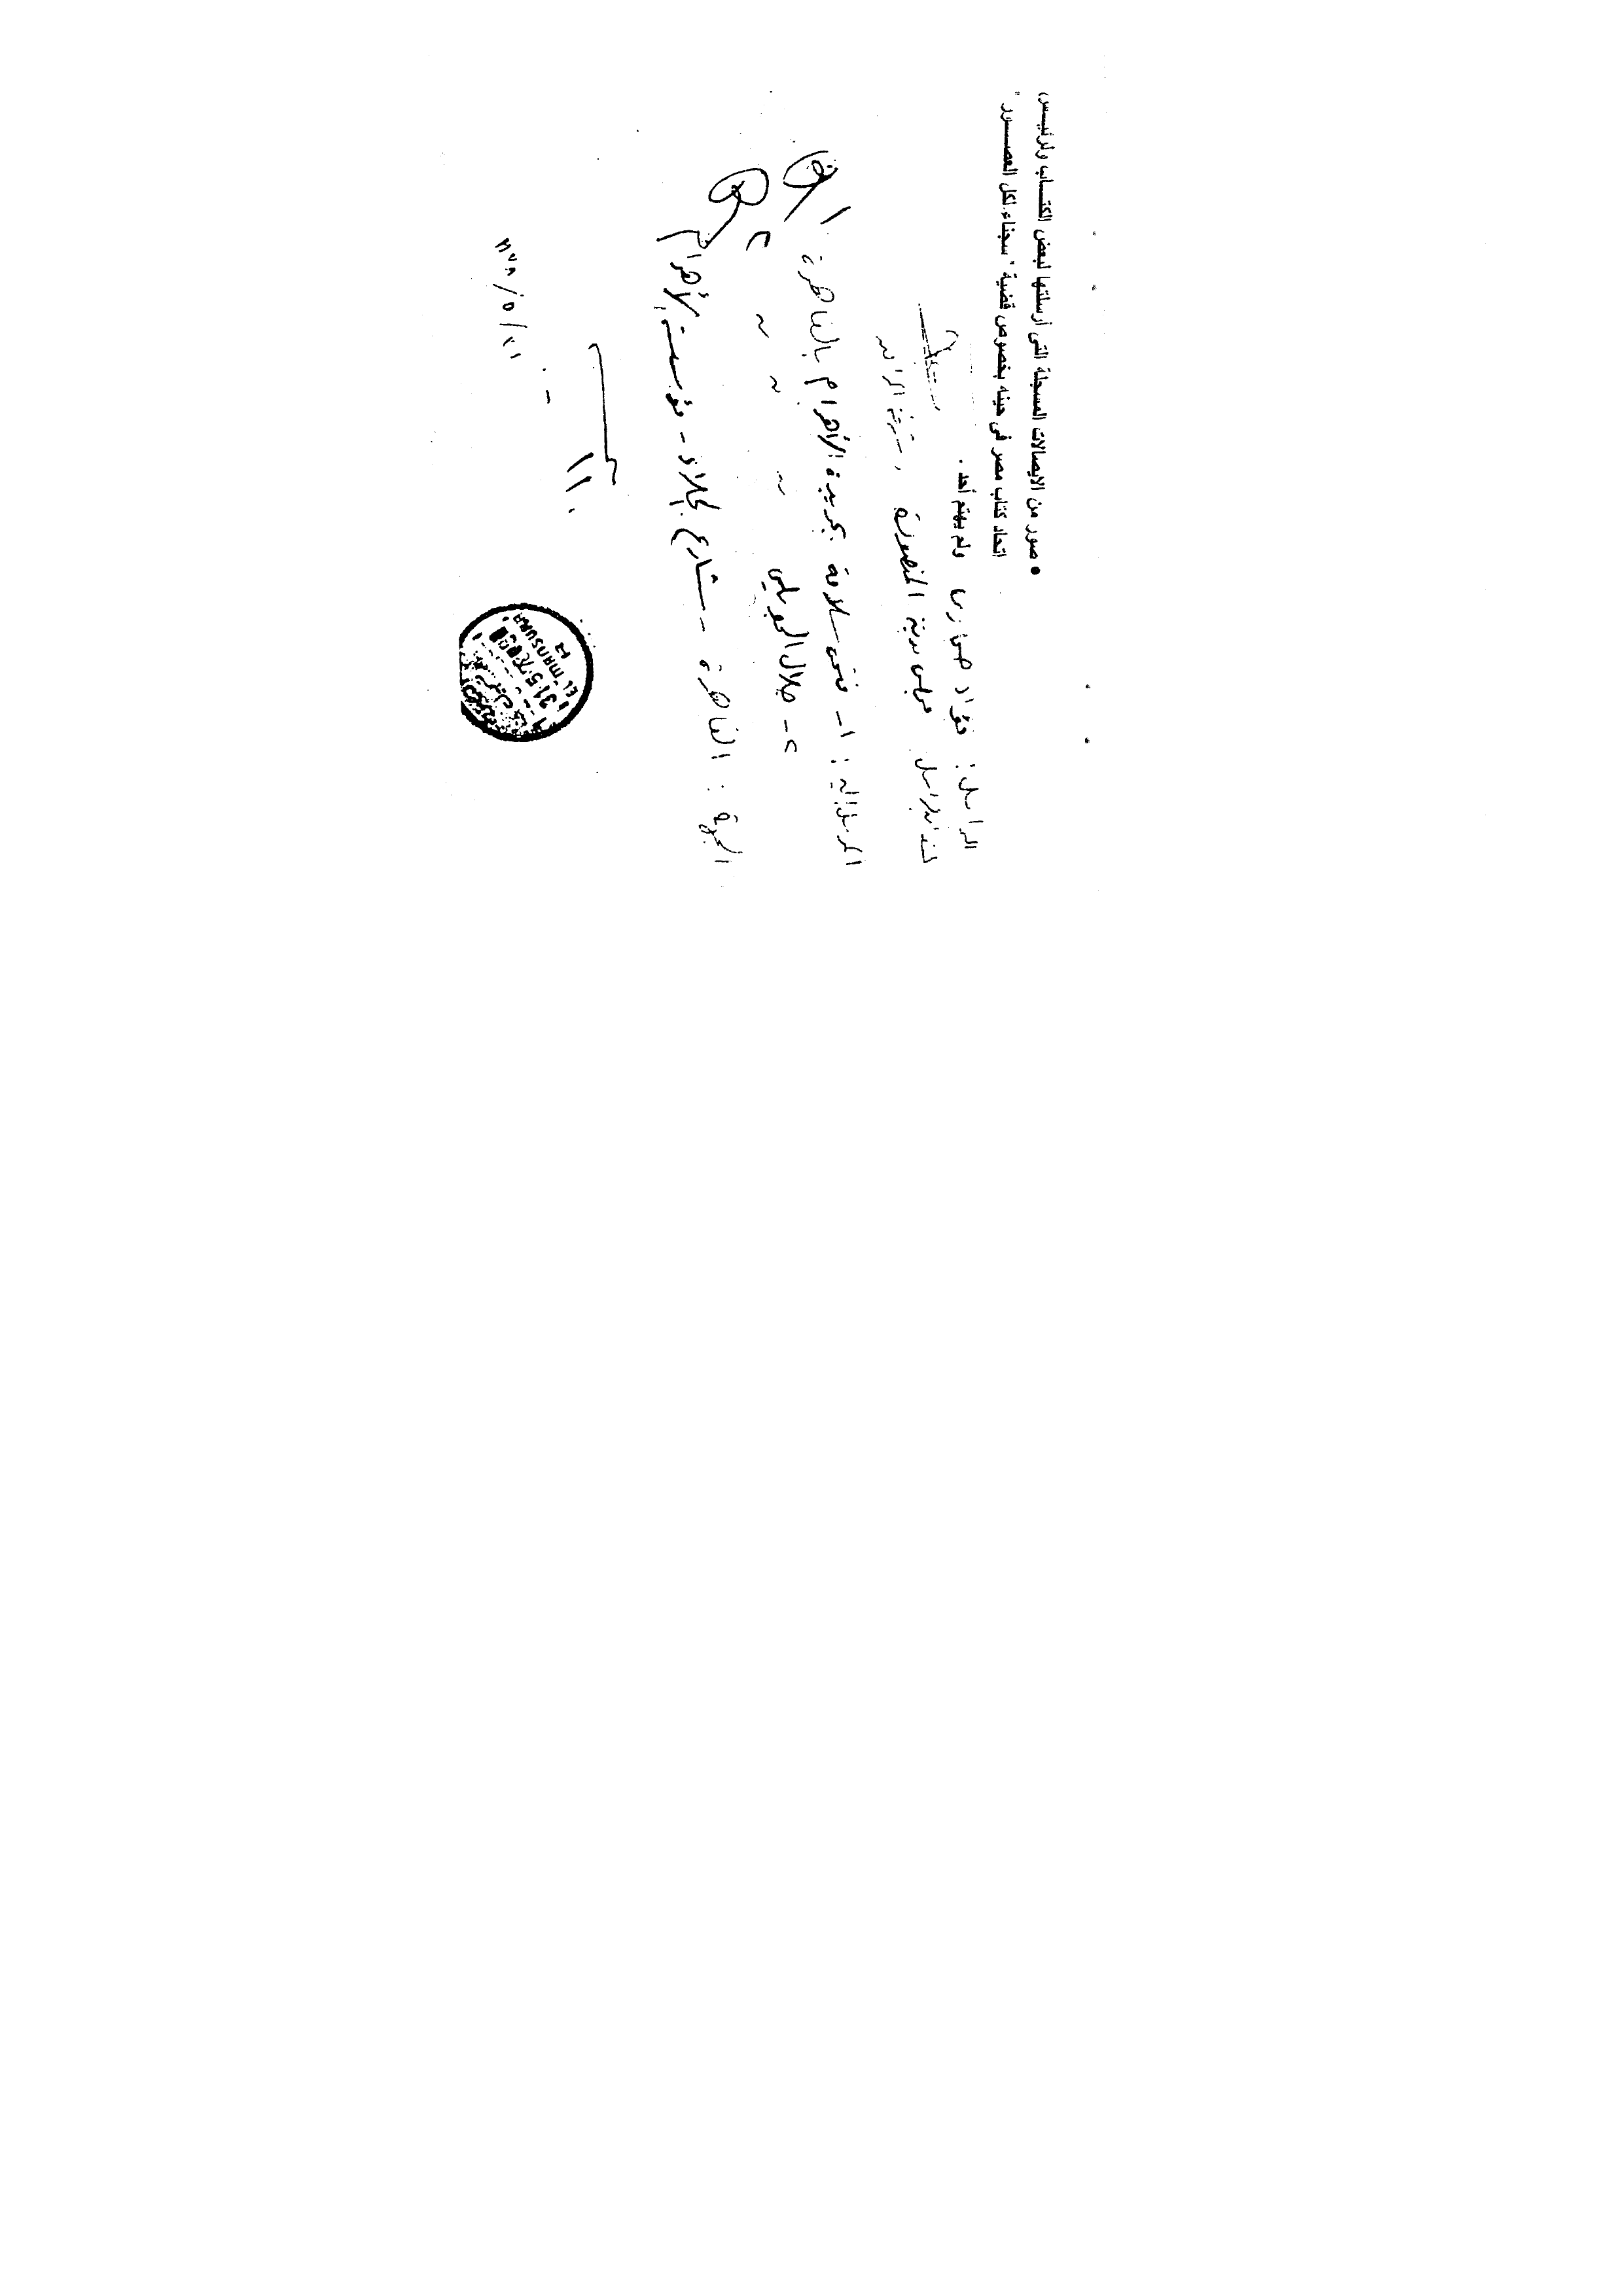 • صور من الايصالات المسجلة التى أرسلتها لبعض الكتــاب ولرئيــس
اتحاد كتاب مصر فى حينه بخصوص قضية " سجناء لكل العصــور "
ولم يهتم أحد .
الراسل : فؤاد حجازى
مجلس مدينة المنصورة
المرسل إليه : ١ - فتحى سلامة بجريدة الأهرام بالقاهرة ١
٢ - جلال ٢
الجهة : القاهرة - شارع الجلاء - مؤسسة الأهرام
EL MANSURA
31.5.78